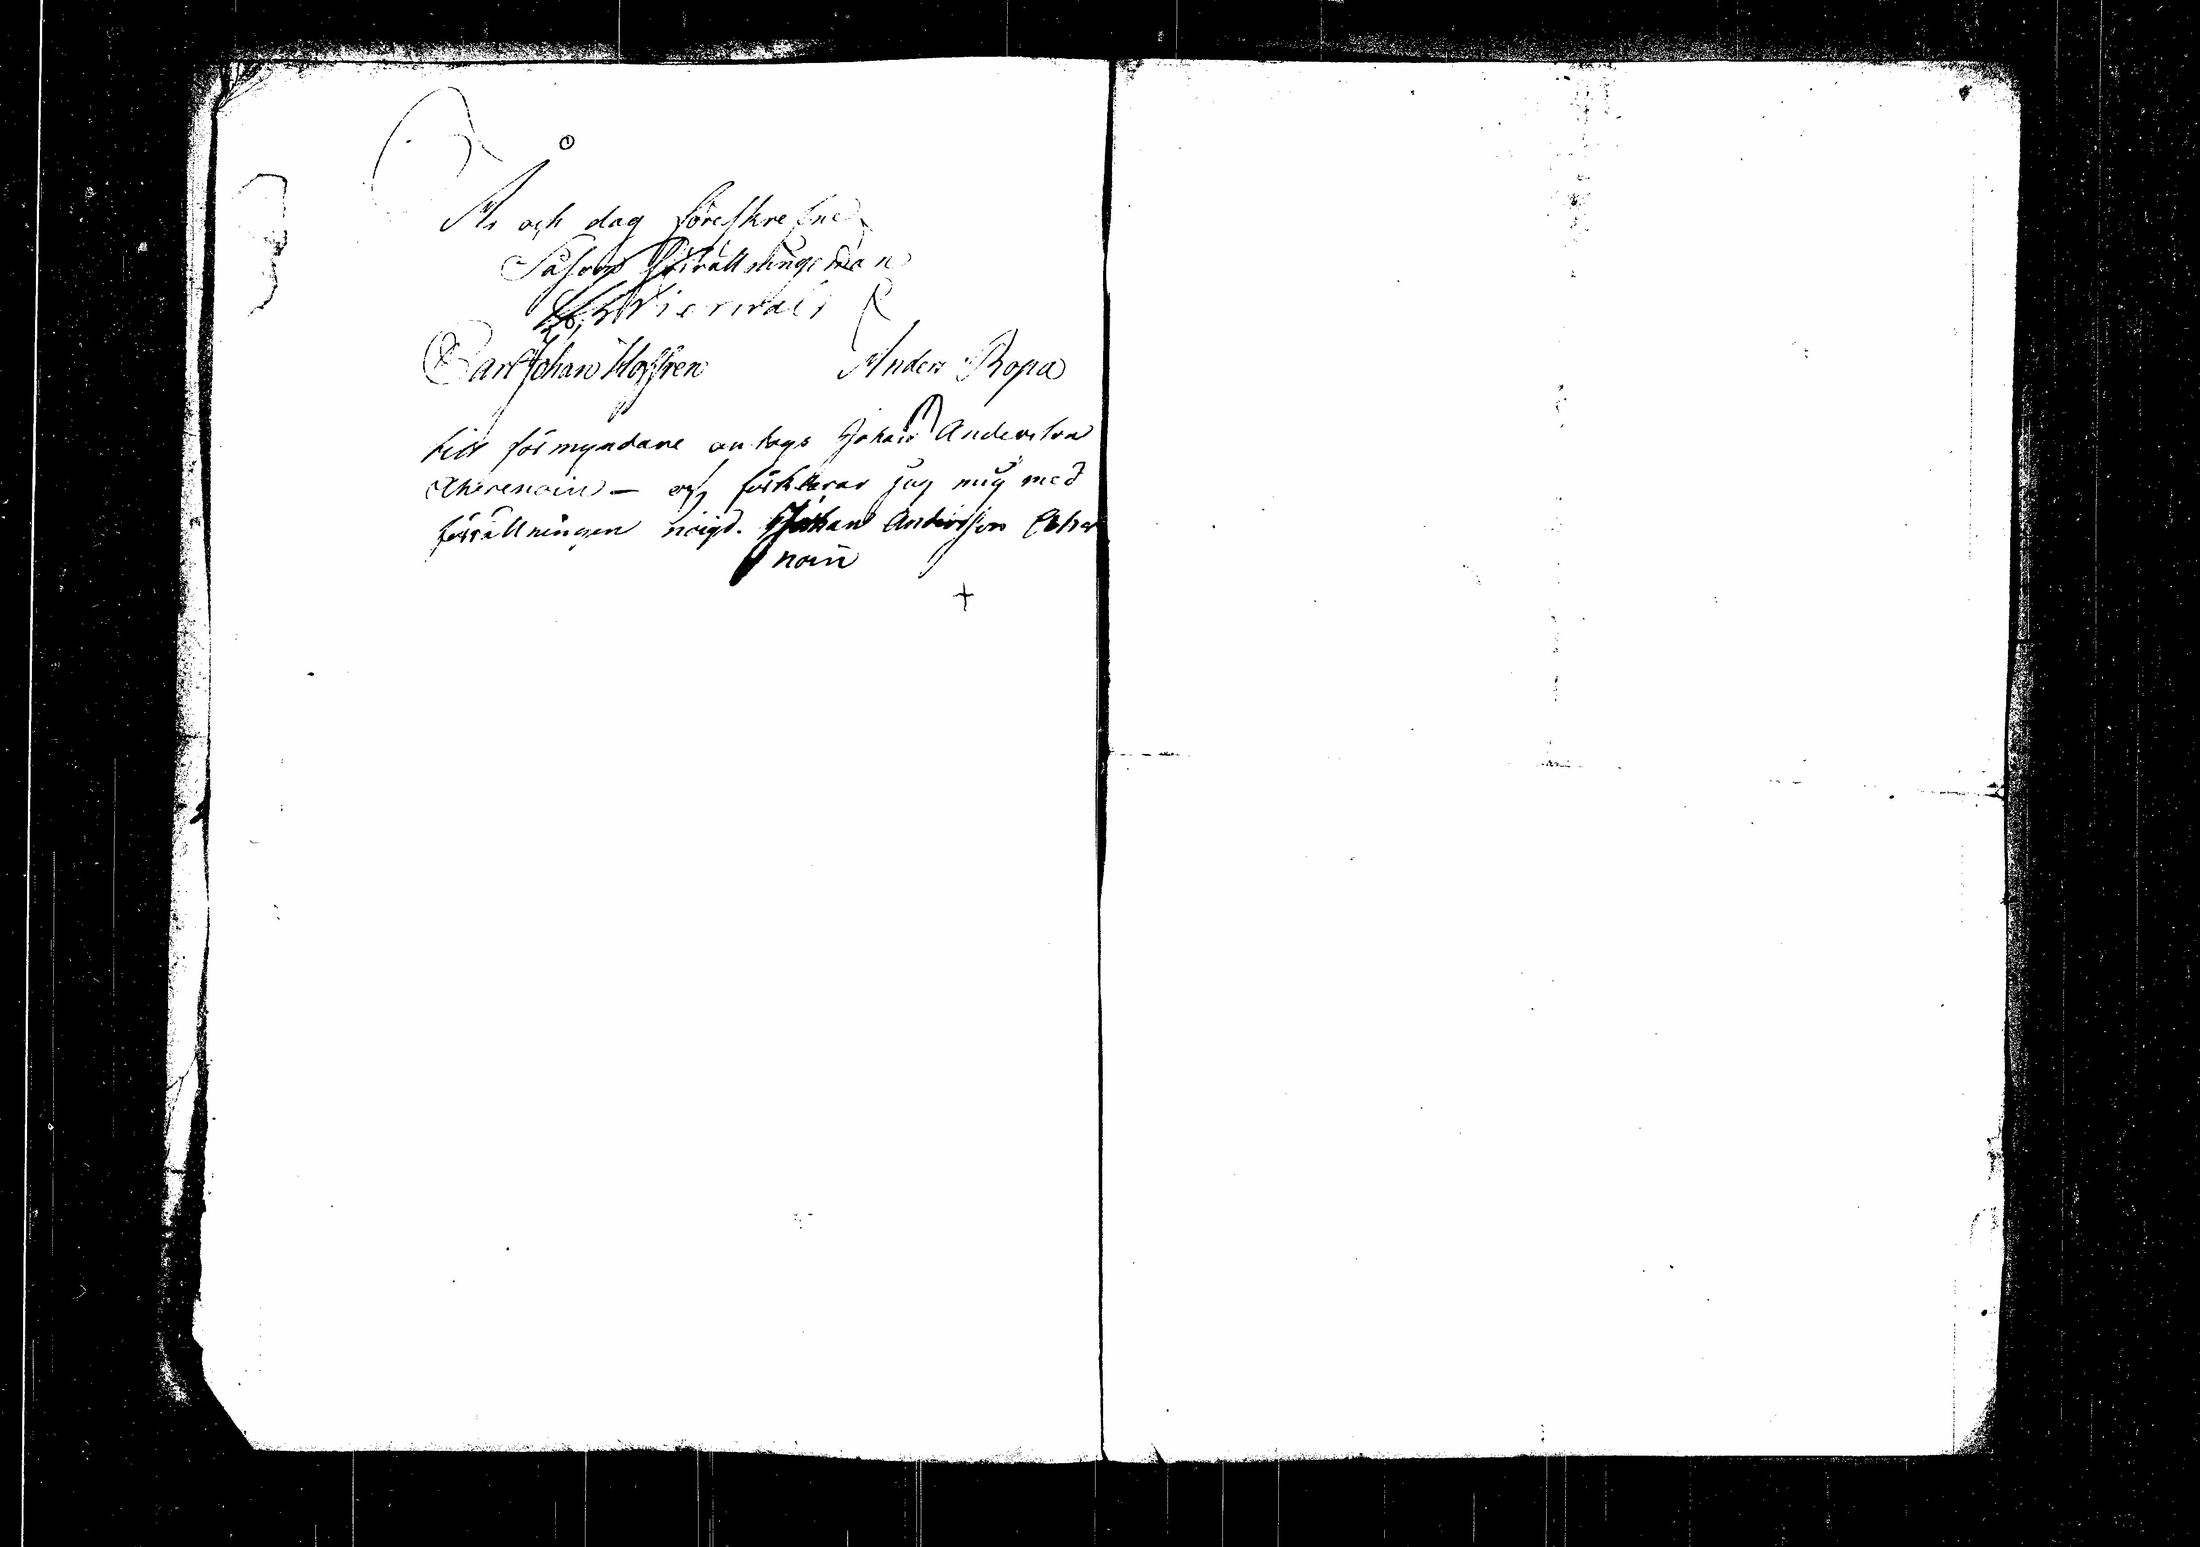 År och dag föreskrefne
Såsom Förrättningsman
Carl Johan Hoffren Anders Ropa
till förmyndare antogs Johan Andersson
och förklarar jag mig med
förrättningen nöigd. Johan Andersson